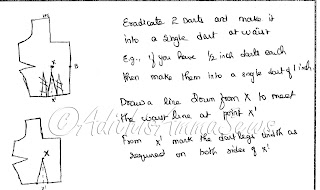 Eradicate 2 darts and make it
into a single dart at waist
Eg., if you have 1/2 inch darts each
then make them into a single dart of 1 inch
X
B
X'
Draw a line down from X to meet
the waist line at point x'
From x' mark the dart legs width as
required on both sides of x'
X
X'